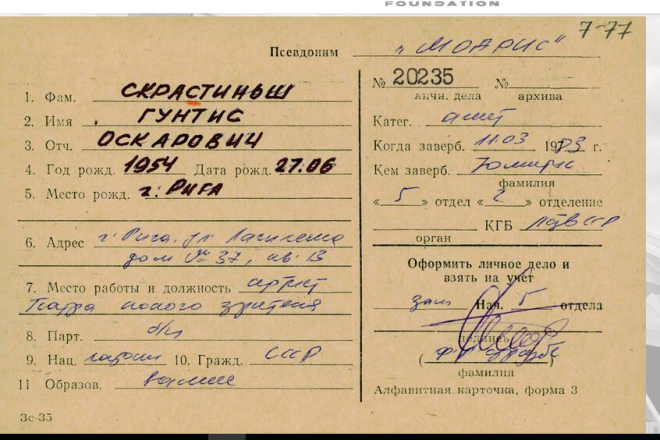 FOUNDATION
7-77
Псевдоним „МОРРИС“
№ 20235 №
личн. дела архива
1. Фам. СКРАСТИНЬШ
2. Имя ГУНТИС
3. Отч. ОСКАРОВИЧ
4. Год рожд. 1954 Дата рожд. 27.06
5. Место рожд. г. РИГА
Катег. агент
Когда заверб. 11.03 1983 г.
Кем заверб.
фамилия
« 5 » отдел « 2 » отделение
КГБ ЛатвССР
орган
6. Адрес г. Рига, ул.
дом № 37, кв. 13
7. Место работы и должность артист
Театра юного зрителя
8. Парт. б/п
9. Нац. латыш 10. Гражд. СССР
11 Образов. высшее
Оформить личное дело и
взять на учет
зам Нач. 5 отдела
подпись
фамилия
Алфавитная карточка, форма 3
Зс-35